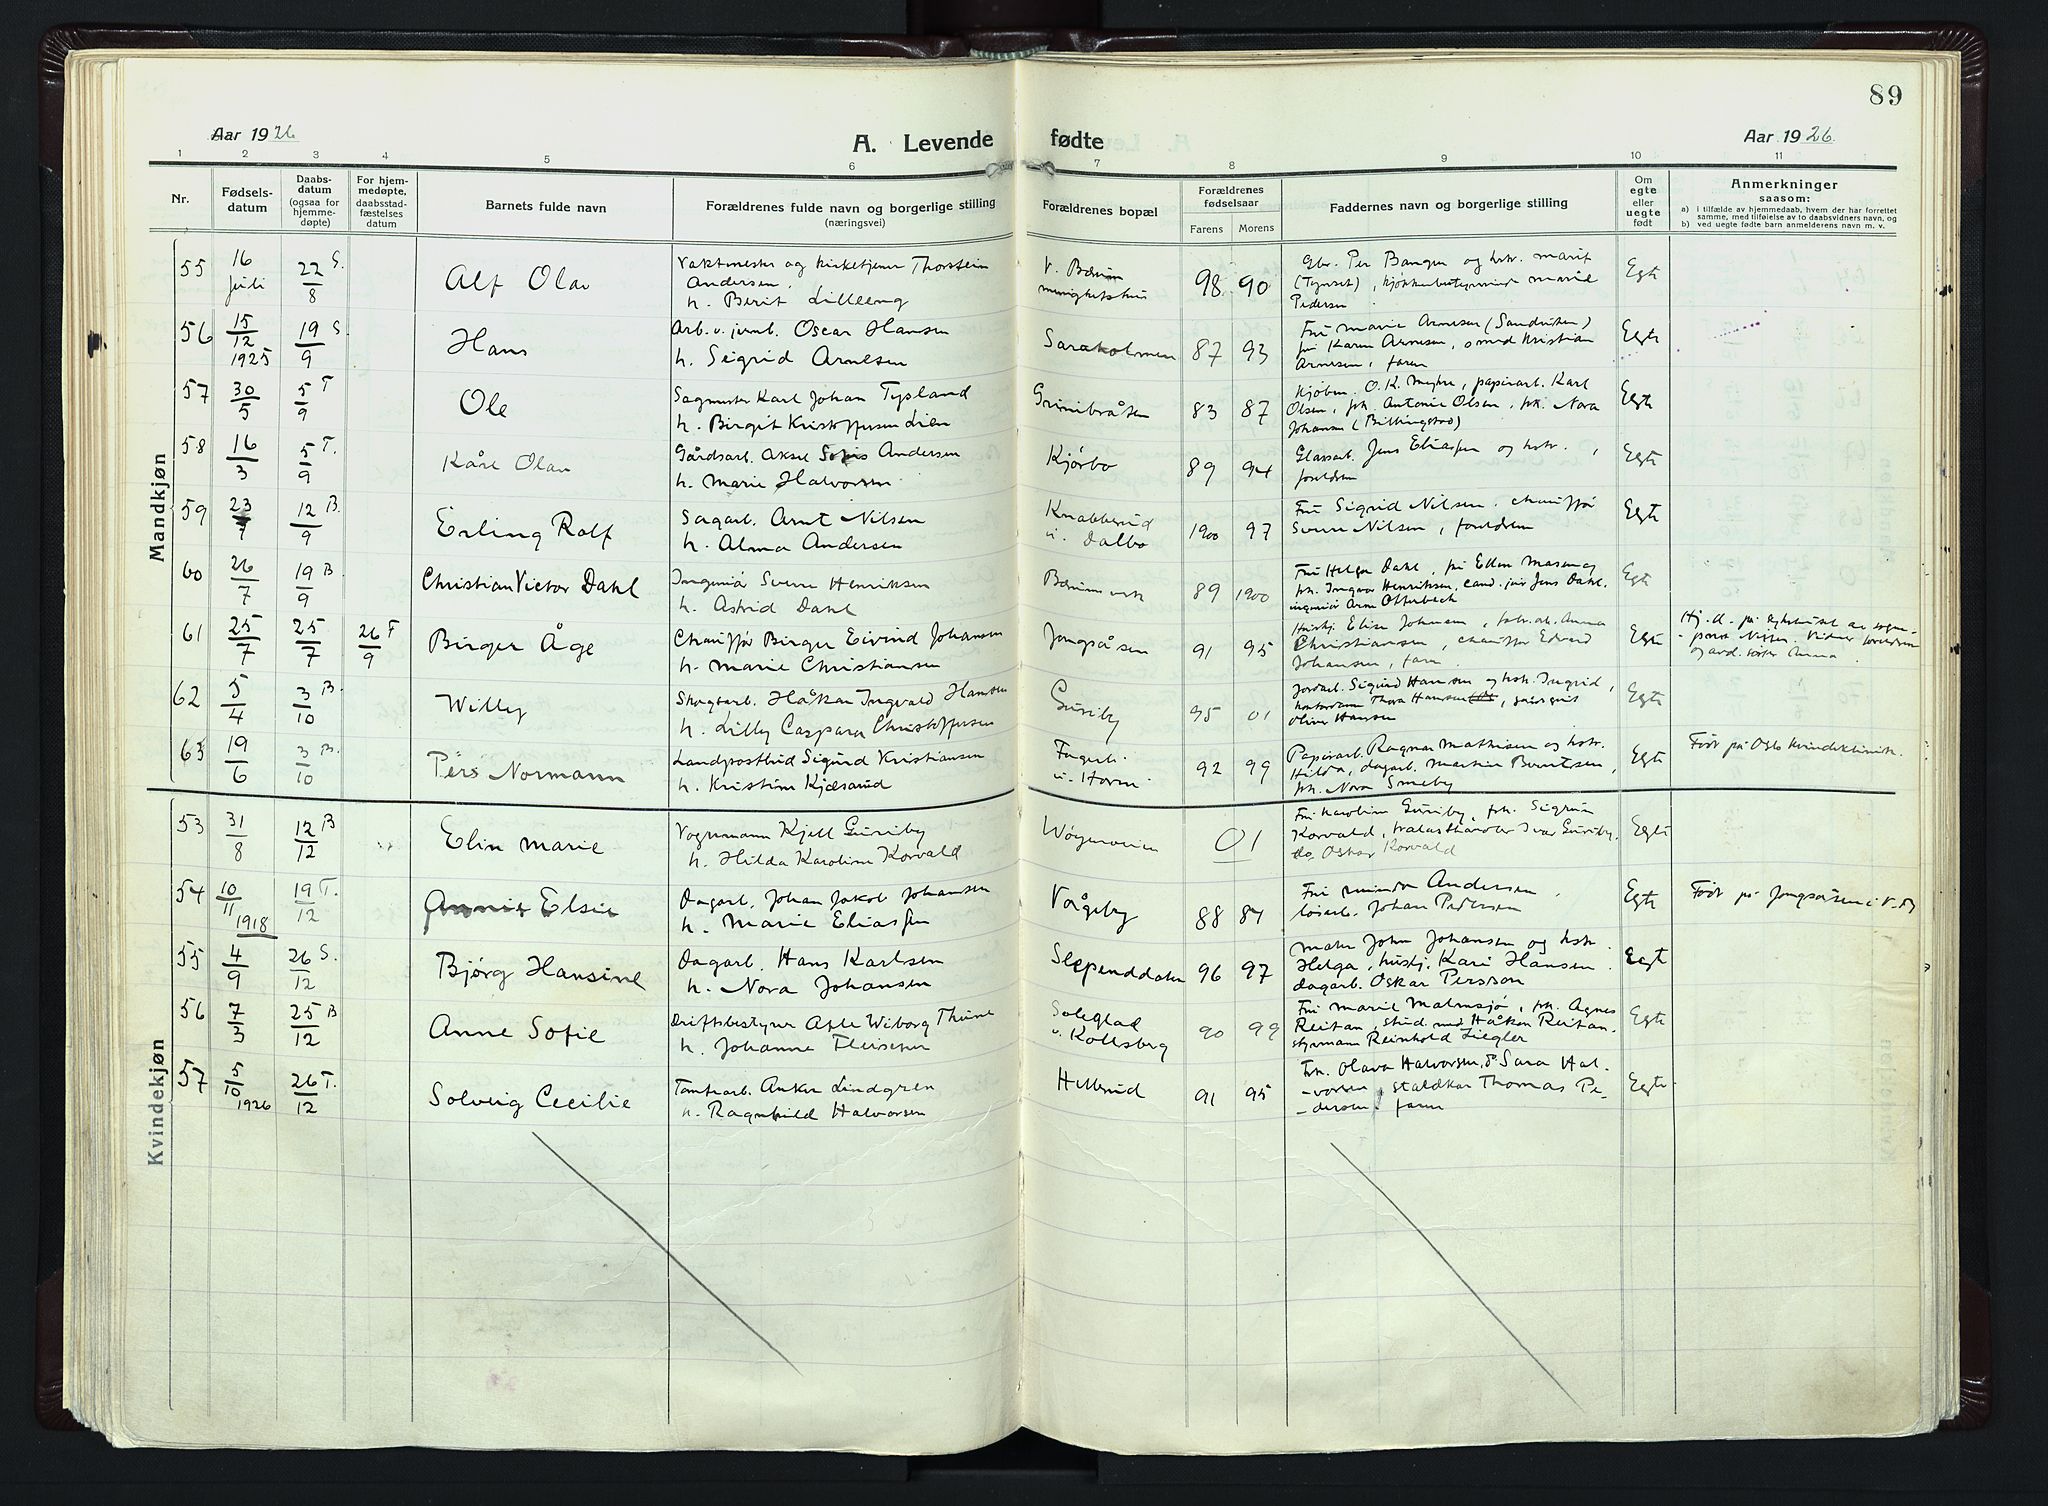 89
Aar 1926
A. Levende fødte
Aar 1926.
1 2 3 4 5 6 7 8 9 10 11
Nr.
Fødsels-
datum
Daabs-
datum
(ogsaa for
hjemme-
døpte)
For hjem-
medøpte,
daabsstad-
fæstelses
datum
Barnets fulde navn
Forældrenes fulde navn og borgerlige stilling
(næringsvei)
Forældrenes bopæl
Forældrenes
fødselsaar
Farens Morens
Faddernes navn og borgerlige stilling
Om
egte
eller
uegte
født
Anmerkninger
saasom:
a) i tilfælde av hjemmedaab, hvem der har forrettet
samme, med tilføielse av to daabsvidners navn, og
b) ved uegte fødte barn anmelderens navn m. v.
Mandkjøn
55 16 juli 22/8 S. Alf Olav
Vaktmester og kirketjener Thorstein
Andersen.
h. Berit Lilleeng
V. Bærum
menighetshus
98 90
Gbr. Per Bangen og hstr. Marit
(Tynset), kjøkkenbestyrerinde Marie
Pedersen
Egte
56 15/12 1925 19/9 S. Hans
Arb. v. jernb. Oscar Hansen
h. Sigrid Arnesen
Saraholmen
87 93
Fru Marie Arnesen (Sandviken)
fru Karen Arnesen, smed Kristian
Arnesen, faren
Egte
57 30/5 5/9 T Ole
Sagmester Karl Johan Tysland
h. Birgit Kristoffersen Lien
Grinibråten
83 87
Kjøbm. O. K. Myhre, papirarb. Karl
Olsen, frk. Antonie Olsen, frk. Nora
Johansen (Billingstad)
Egte
58 16/3 5/9 T. Kåre Olav
Gårdsarb. Aksel Andersen
h. Marie Halvorsen
Kjørbo
89 94
Glassarb. Jens Eliassen og hstr.,
foreldrene
Egte
59 23/7 12/9 B. Erling Rolf
Sagarb. Arnt Nilsen
h. Alma Andersen
Knabberud
v. Dalbo
1900 97
Fru Sigrid Nilsen. chauffør
Sverre Nilsen, foreldrene
Egte
60 26/7 19/9 B Christian Victor Dahl
Ingeniør Sverre Henriksen
h. Astrid Dahl
Bærums verk
89 1900
Fru Helga Dahl, fru Ellen Masen og
frk. Ingvar Henriksen, cand. jur Jens Dahl.
ingeniør Arne Otterbech
Egte
61 25/7 25/7 26/9 F Birger Åge
Chauffør Birger Eivind Johansen
h. Marie Christiansen
Jongsåsen
91 95
Hushj. Elise Johnsen, Anna
Christiansen, chauffør Edvard
Johansen, faren.
Egte
Hj. d. på sykehuset av sogne-
prest Nissen. Vidner foreldrene
og avd. søster Anna.
62 5/4 3/10 B. Willy
Skogsarb. Håkon Ingvald Hansen
h. Lilly Caspara Christoffersen
Guriby
95 01
Jordarb. Sigurd Hansen og hstr. Ingrid,
kontordame Thora Hansen,
Oliver Hansen
Egte
63 19/6 3/10 B. Pers Normann
Landpostbud Sigurd Kristiansen
h. Kristine Kjæsrud
v. Horni
92 99
Papirarb. Ragnar Mathisen og hstr.
Hilda, dagarb. Martin Berntsen,
frk. Nora Smeby
Egte
Født på Oslo Kvindeklinik.
Kvindekjøn
53 31/8 12/12 B Elin Marie
Vognmann Kjell Guriby
h. Hilda Karoline Korvald
01
Fru Karoline Guriby, frk. Sigrun
Korvald, Ivar Guriby.
do. Oskar Korvald
Egte
54 10/11 1918 19/12 T. Annie Elsie
Dagarb. Johan Jakob Johansen
h. Marie Eliassen
Vågeby
88 84
Fru Minda Andersen.
løsarb. Johan Pedersen
Egte
Født på Jongsåsen i V.B
55 4/9 26/12 S. Bjørg Hansine
Dagarb. Hans Karlsen
h. Nora Johansen
Slependdalen
96 97
Maler John Johansen og hstr.
Helga, hushj. Kari Hansen.
dagarb. Oskar Persson
Egte
56 7/3 25/12 B Anne Sofie
Driftsbestyrer Axle Wiborg Thune
h. Johanne Fleischer
Soleglad
v. Kolsberg
90 99
Fru Marie Malmsjø, frk. Agnes
Reitan, stud. med Håkon Reitan.
styrmann Reinhold Ziegler
Egte
57 5/10 1926 26/12 T. Solveig Cecilie
Tomtearb. Anker Lindgren
h. Ragnhild Halvorsen
Hellerud
91 95
Frk. Olava Halvorsen, do Sara Hal-
-vorsen, staldkar Thomas Pe-
-dersen. faren
Egte